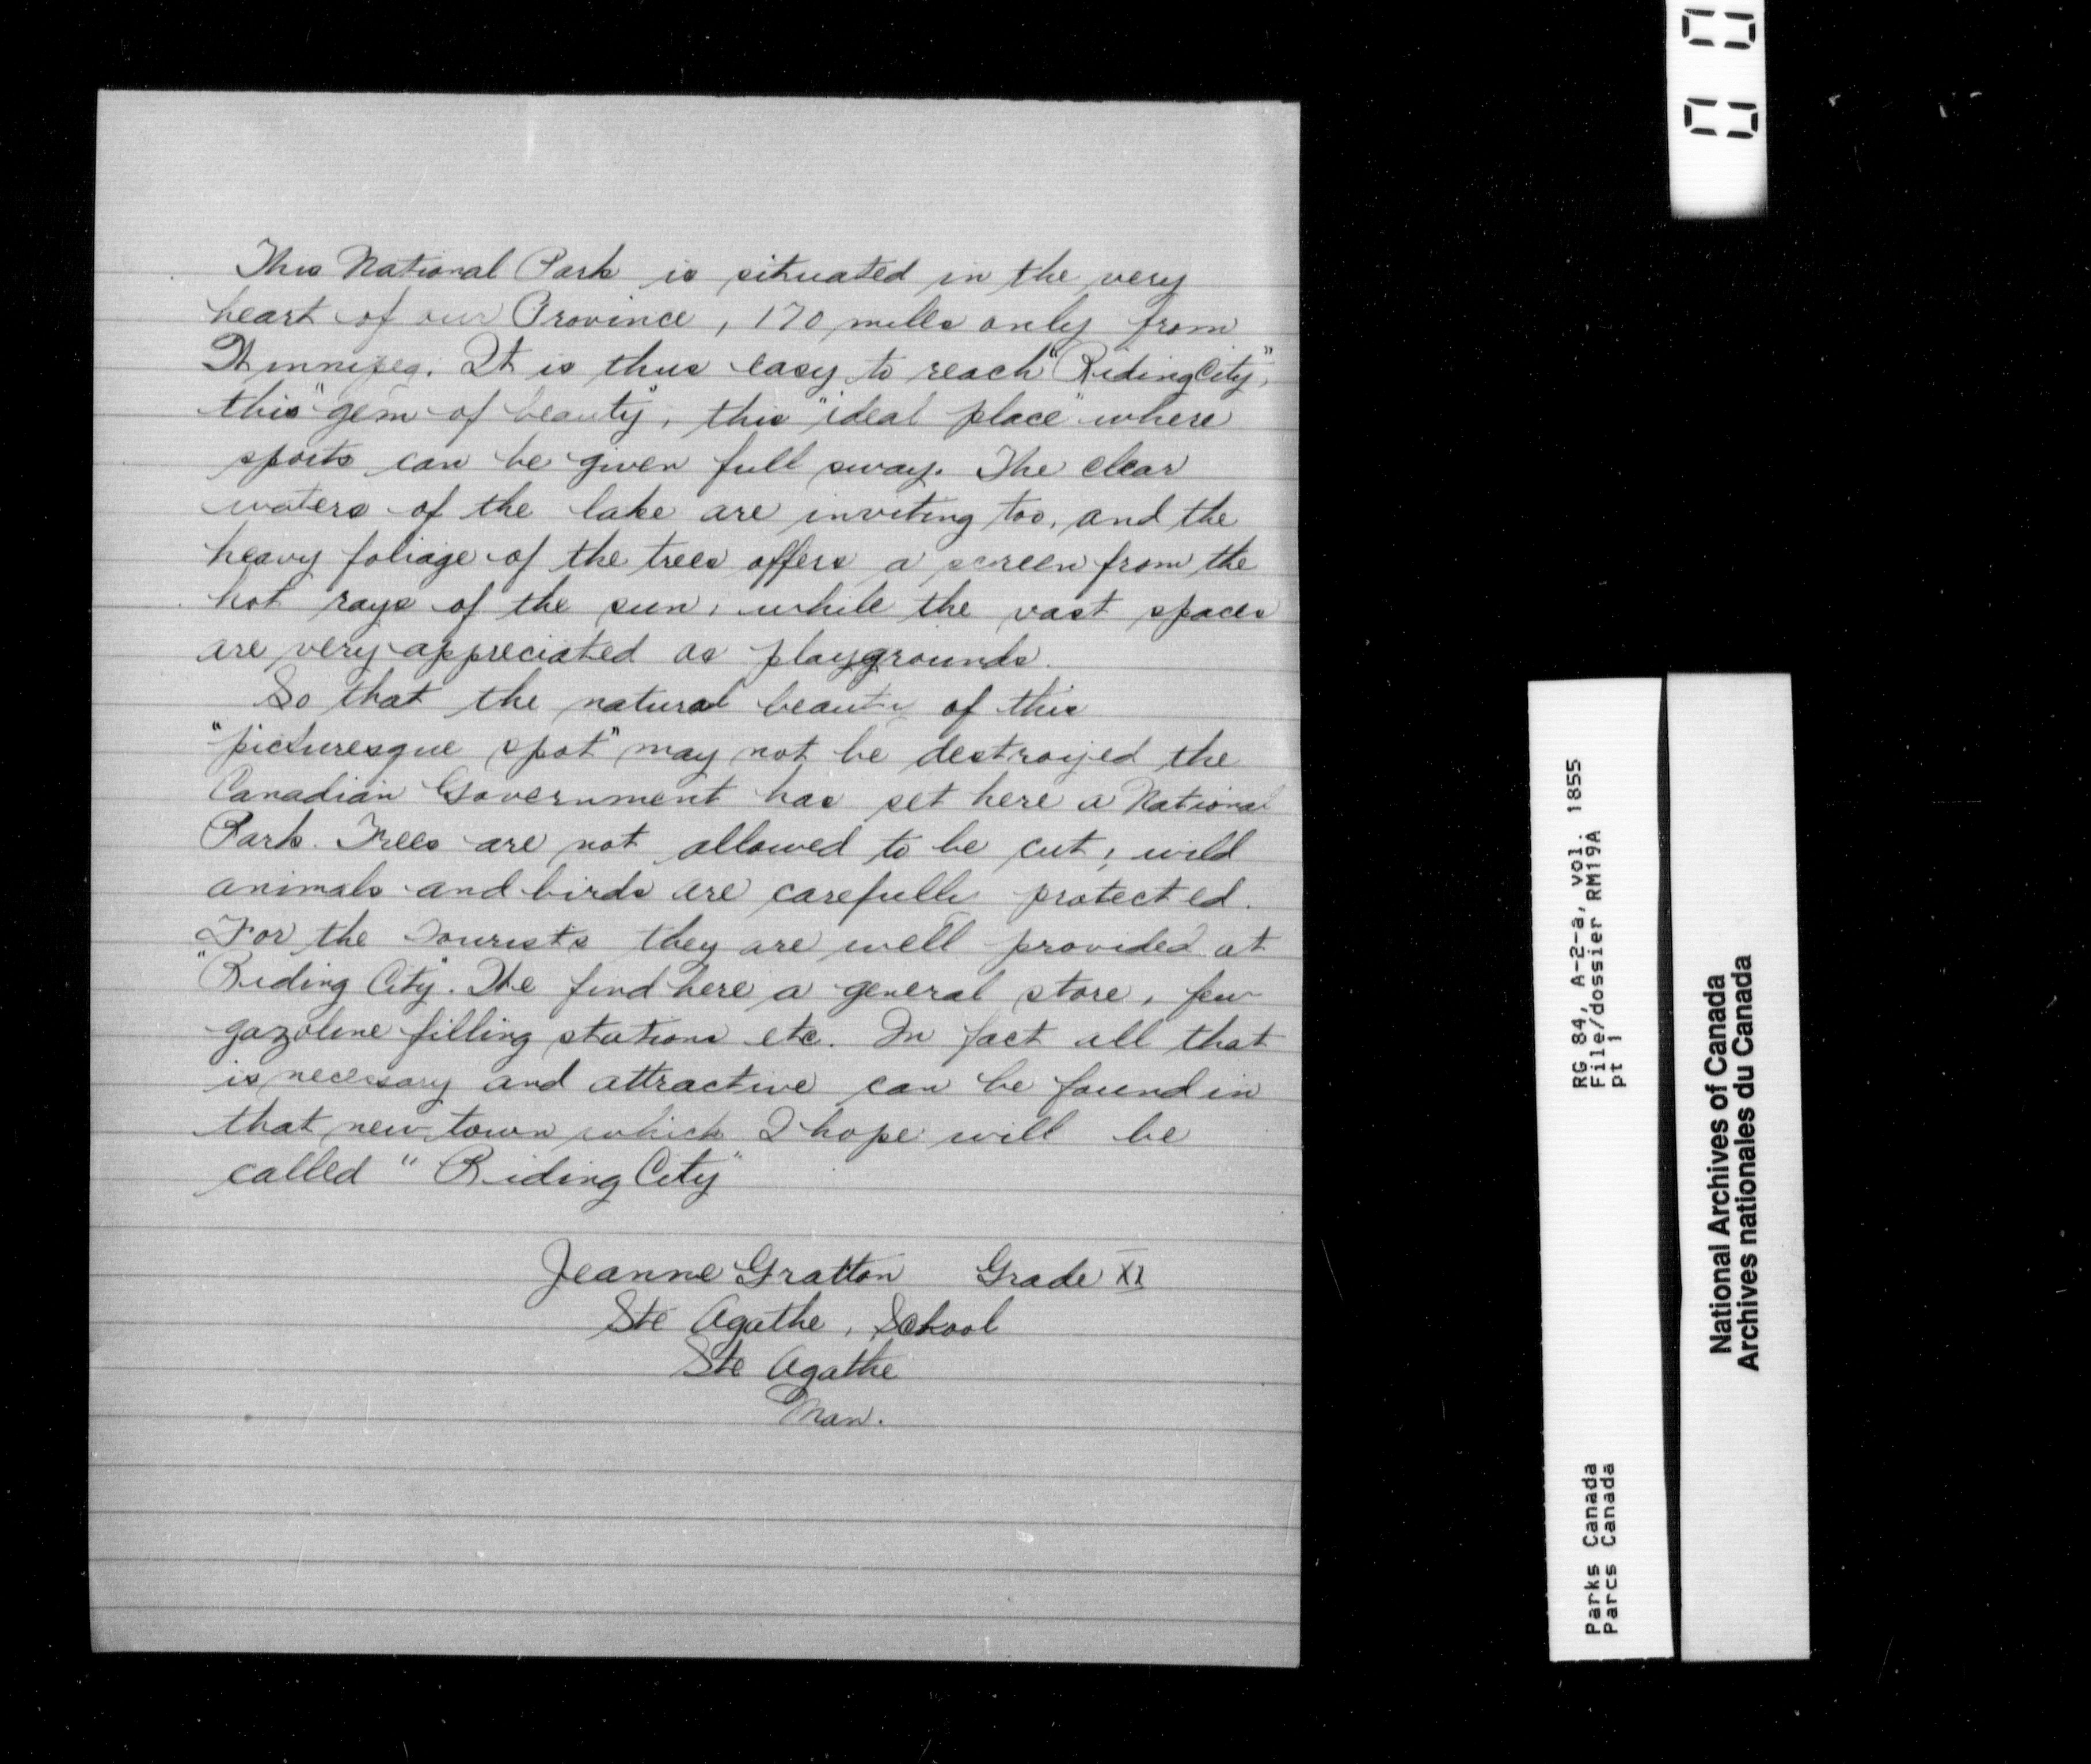 This National Park is situated in the very
heart of our Province, 170 milles only from
Winnipeg. It is thus easy to reach "Riding City",
this "gem of beauty", this "ideal place" where
sports can be given full sway. The clear
waters of the lake are inviting too, and the
heavy foliage of the trees offers a screen from the
hot rays of the sun, while the vast spaces
are very appreciated as playgrounds.
So that the natural beauty of this
"picturesque spot" may not be destroyed the
Canadian Government has set here a National
Park. Trees are not allowed to be cut; wild
animals and birds are carefully protected.
For the tourists they are well provided at
"Riding City". We find here a general store, few
gazoline filling stations etc. In fact all that
is necessary and attractive can be found in
that new town which I hope will be
called "Riding City"
Jeanne Gratton Grade XI
Ste Agathe, School
Ste Agathe
Man.
RG 84, A-2-a, vol. 1855
File/dossier RM19A
pt 1
Parks Canada
Parcs Canada
National Archives of Canada
Archives nationales du Canada